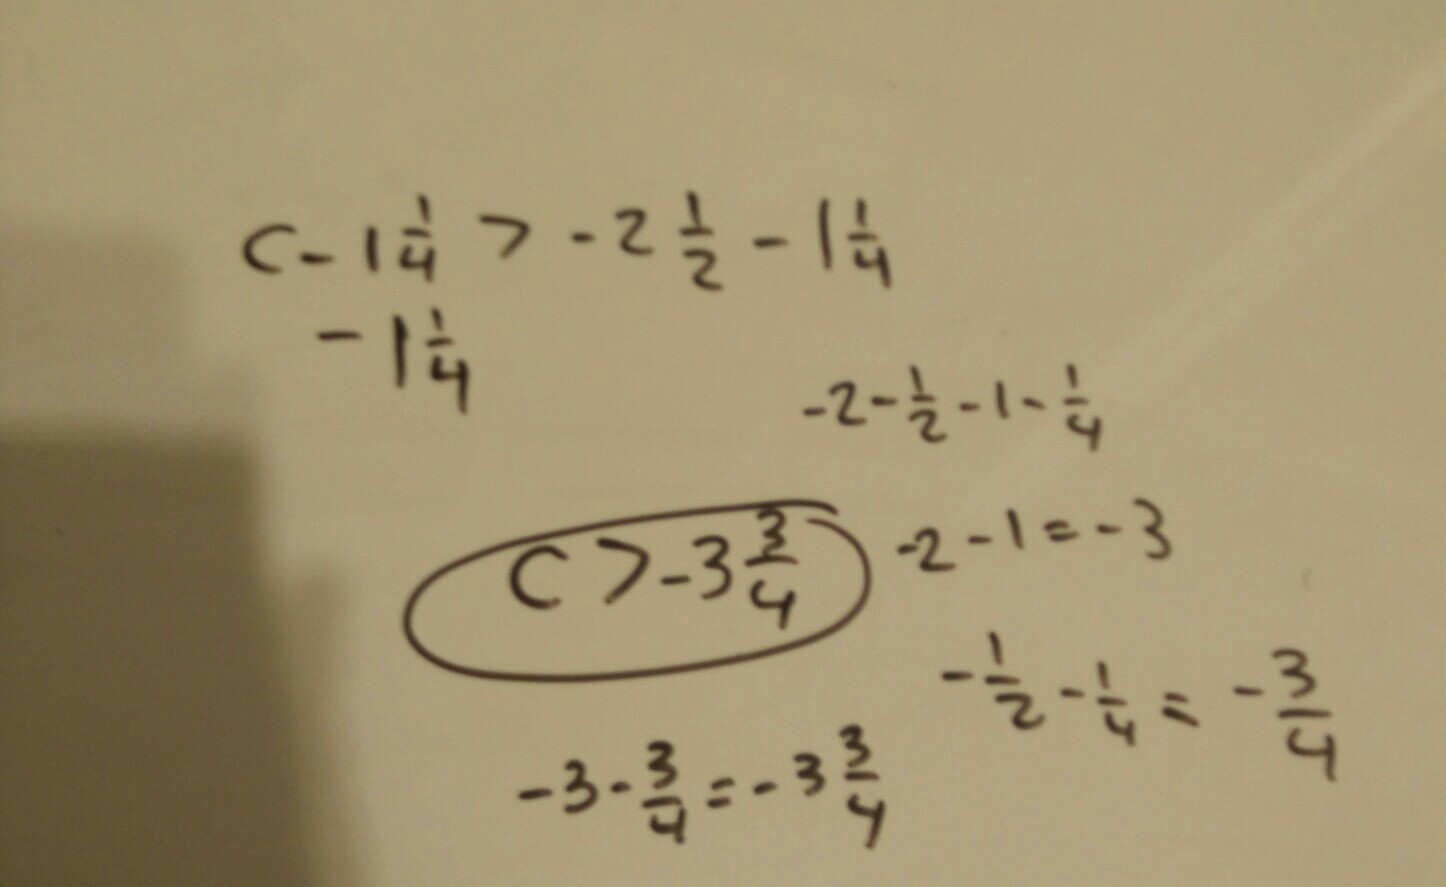 c - 1 1/4 > -2 1/2 - 1 1/4
- 1 1/4
-2 - 1/2 - 1 - 1/4
c > -3 3/4
-2 - 1 = -3
-1/2 - 1/4 = -3/4
-3 - 3/4 = -3 3/4